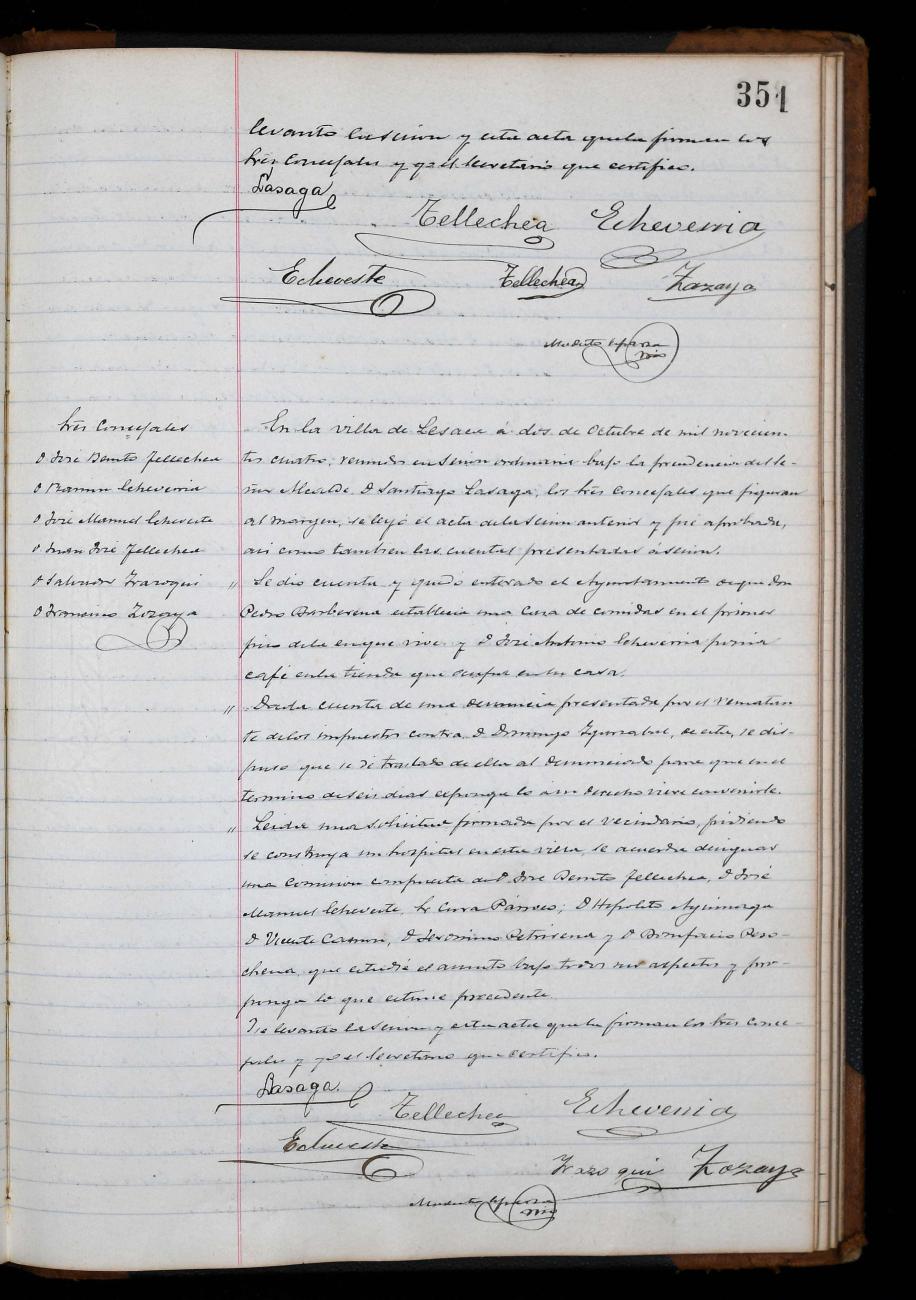 351
levantó la sesion y esta acta que la firman los
Sres Concejales y yo el Secretario que certifico.
Lasaga
Tellechea Echeverria
Echeveste Tellechea Zozaya
Modesto
Sres Concejales
D José Benito Tellechea
D Ramon Echeverria
D José Manuel Echeveste
D Juan José Tellechea
D Salvador Irazoqui
D Francisco Zozaya
En la villa de Lesaca á dos de Octubre de mil novecien-
tos cuatro, reunidos en sesion ordinaria bajo la presidencia del Se-
ñor Alcalde D Santiago Lasaga, los Sres Concejales que figuran
al margen, se leyó el acta de la sesion anterior y fué aprobada,
asi como tambien las cuentas presentadas á sesion.
" Se dio cuenta y quedó enterado el Ayuntamiento de que Don
Pedro Barberena establecia una casa de comidas en el primer
piso de la en que vive y D José Antonio Echeverria ponia
café en la tienda que ocupa en su casa.
" Dada cuenta de una denuncia presentada por el rematan
te de los impuestos contra D Domingo de esta, se dis-
puso que se dé traslado de ella al denunciado para que en el
termino de seis dias esponga lo á su derecho viere convenirle.
" Leida una solicitud firmada por el vecindario, pidiendo
se construya un hospital en esta villa, se acuerda designar
una Comision compuesta de D. José Benito Tellechea, D José
Manuel Echeveste, Sr Cura Párroco; D Hipolito
D Vicente D Jeronimo Petrirena y D Bonifacio Pero-
chena, que estudie el asunto bajo todos sus aspectos y pro-
ponga lo que estime procedente.
Y se levantó la sesion y esta acta que la firman los Sres Conce-
jales y yo el Secretario que certifico.
Lasaga.
Tellechea Echeverria
Echeveste
Irazoqui Zozaya
Modesto